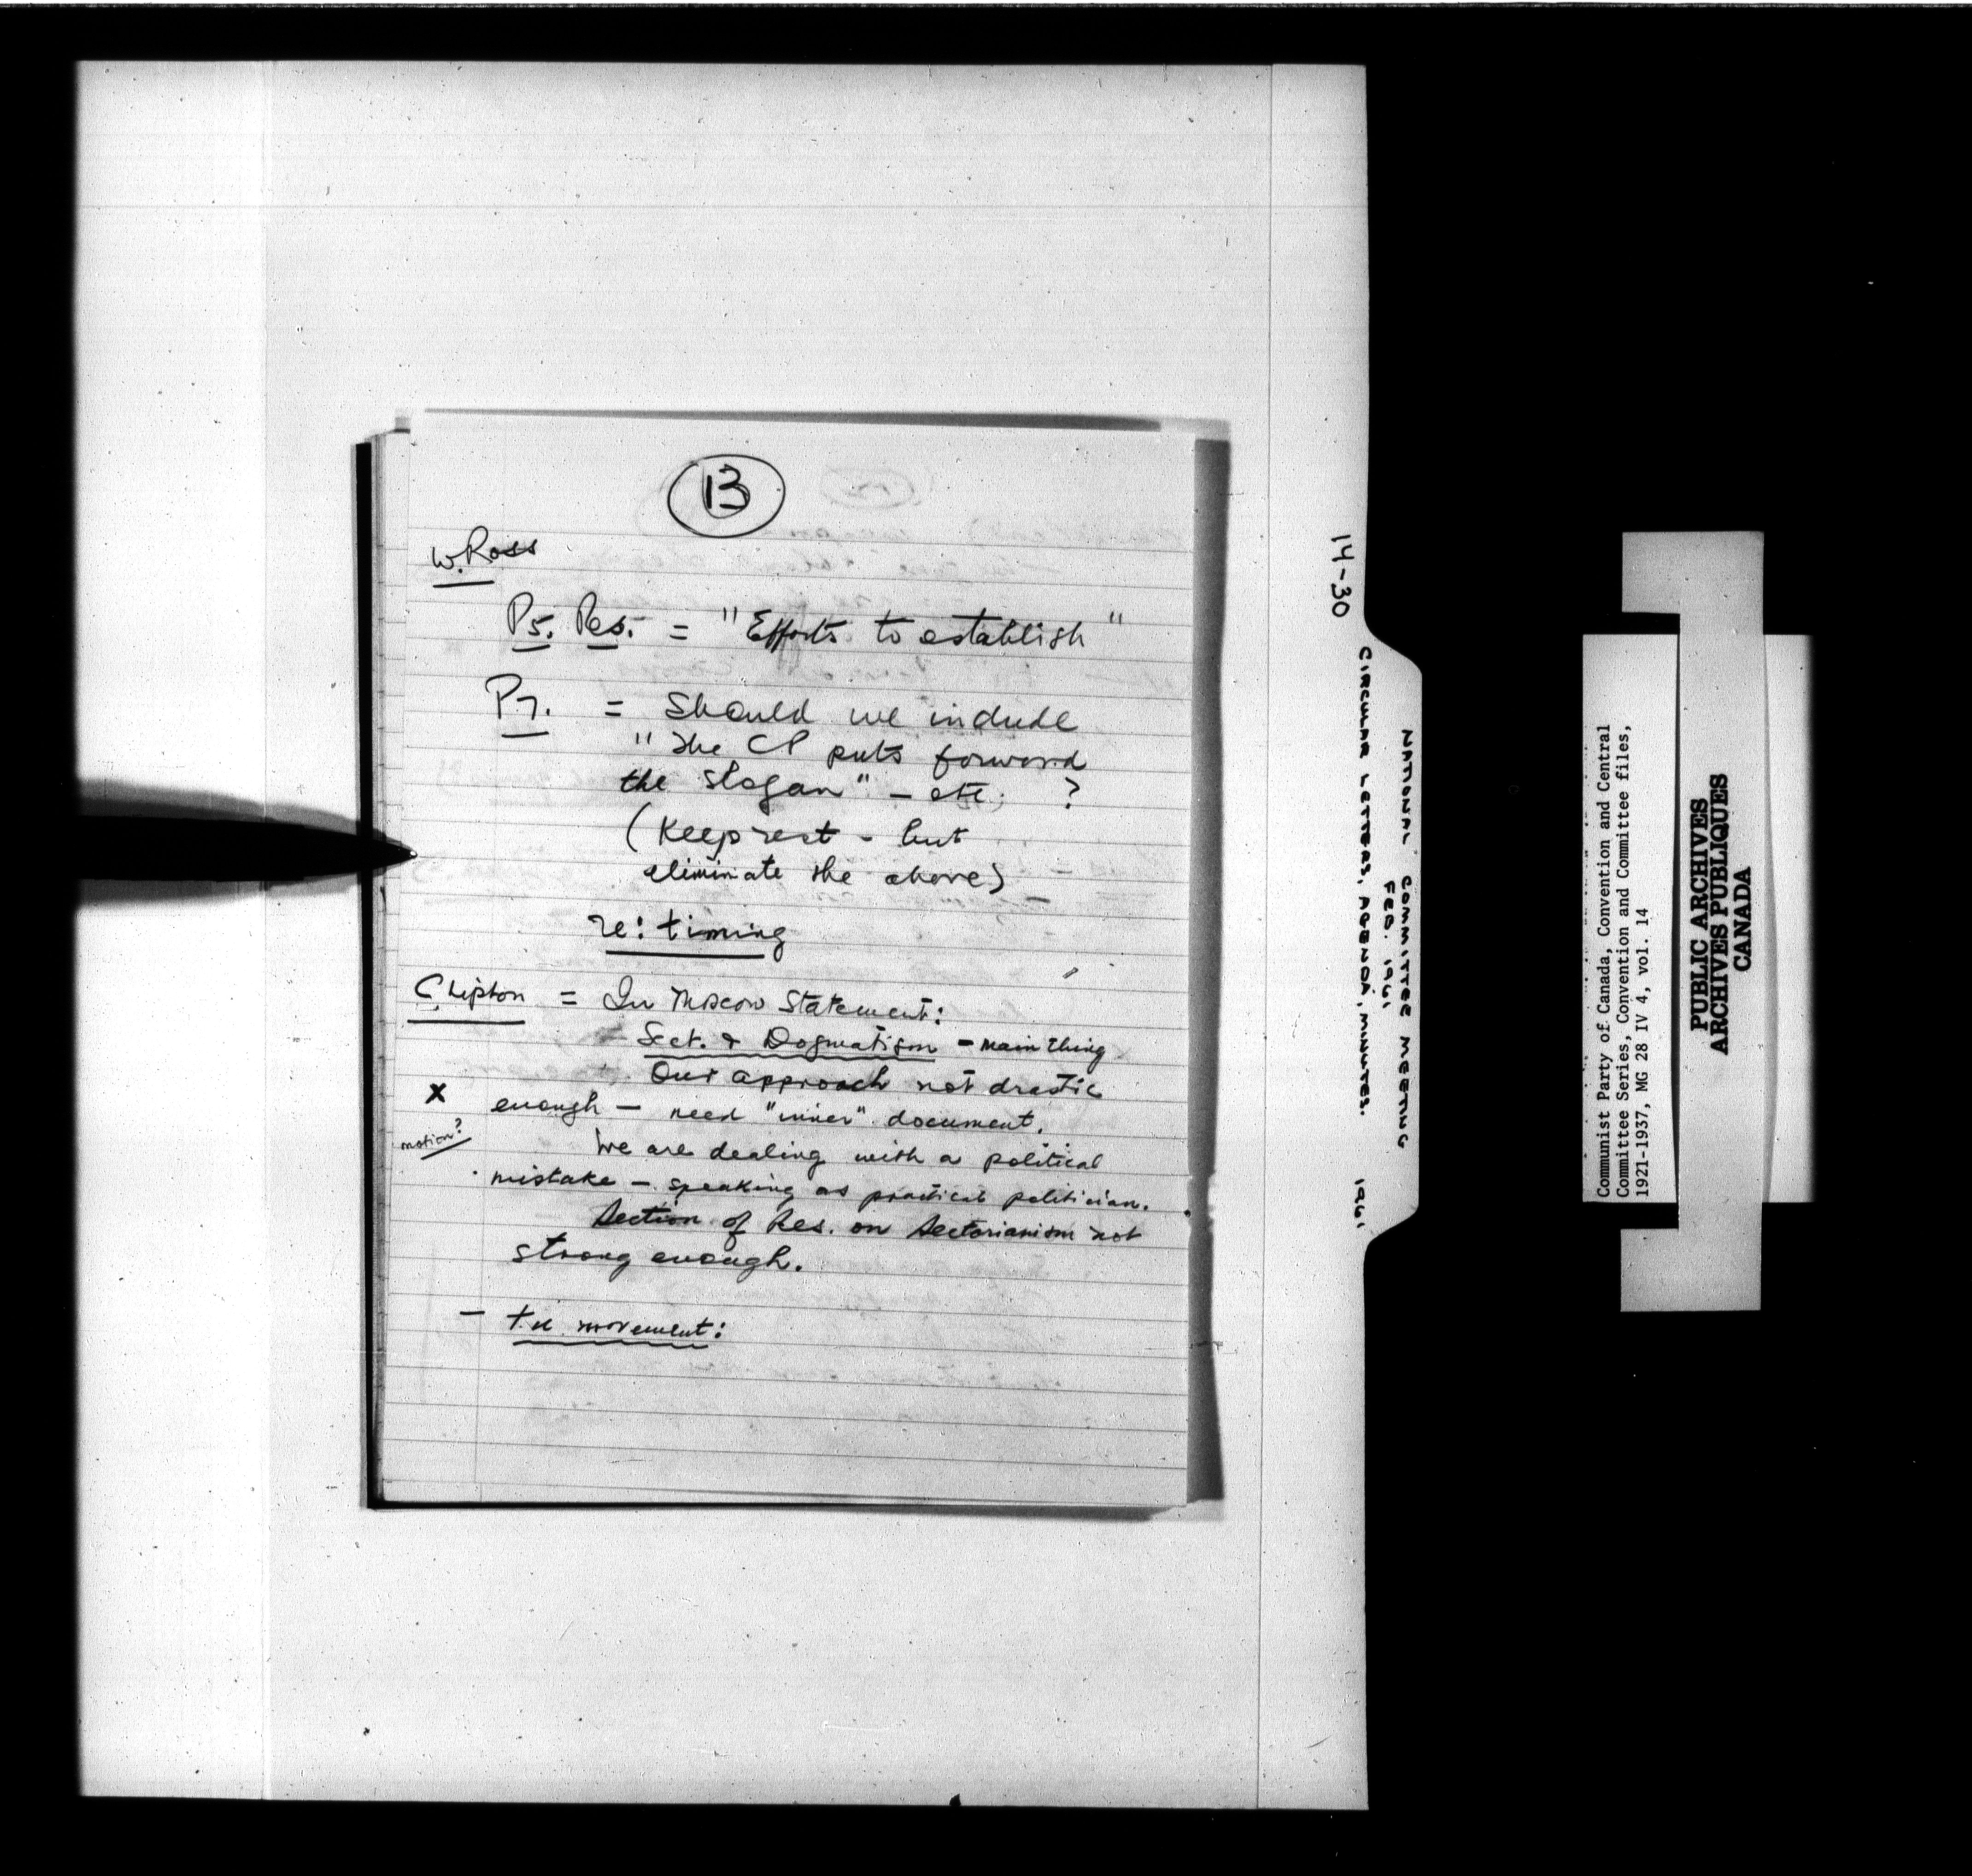 13
W. Ross
P5. Res. = "Efforts to establish"
P7. = Should we include
"The CP puts forward
the slogan" – etc. ?
(Keep rest - but
eliminate the above)
re: timing
C Lipton = In Moscow Statement:
Sect. & Dogmatism – main thing
Our approach not drastic
X enough – need "inner" document.
motion?
We are dealing with a political
mistake – speaking as practical politician.
Section of Res. on Sectarianism not
strong enough.
– t.u. movement:
14-30
NATIONAL COMMITTEE MEETING
FEB. 1961,
CIRCULAR LETTERS, AGENDA, MINUTES. 1961
Communist Party of Canada, Convention and Central
Committee Series, Convention and Committee files,
1921-1937, MG 28 IV 4, vol. 14
PUBLIC ARCHIVES
ARCHIVES PUBLIQUES
CANADA